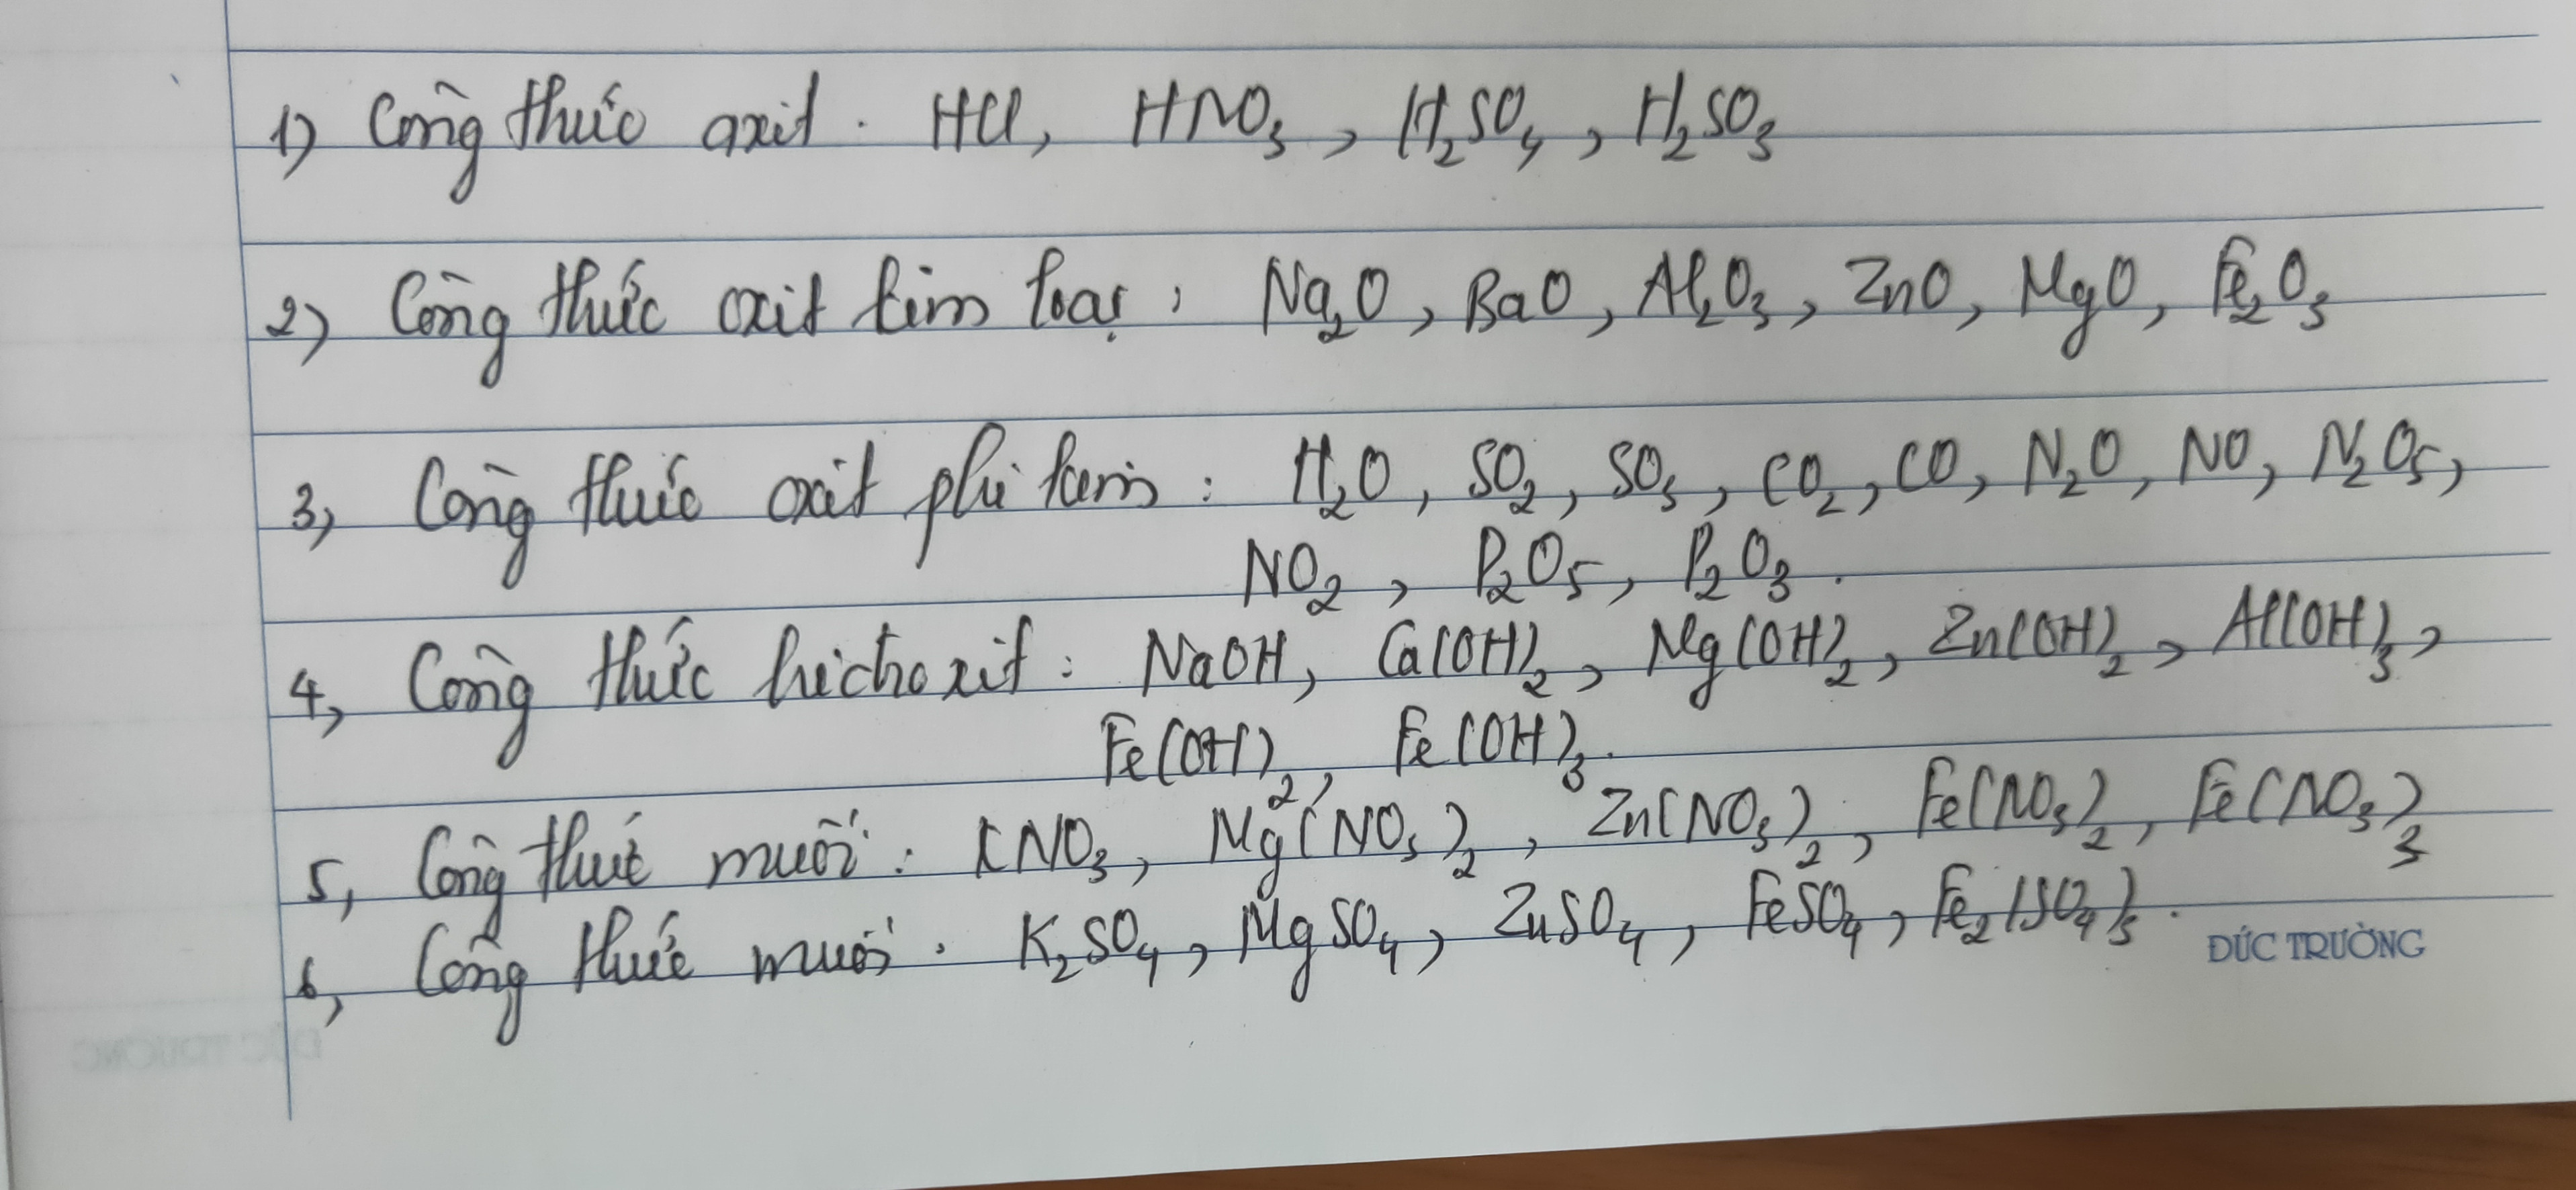 1) Công thức axit : HCl, HNO₃, H₂SO₄, H₂SO₃
2) Công thức oxit kim loại : Na₂O, BaO, Al₂O₃, ZnO, MgO, Fe₂O₃
3, Công thức oxit phi kim : H₂O, SO₂, SO₃, CO₂, CO, N₂O, NO, N₂O₅,
NO₂, P₂O₅, P₂O₃.
4, Công thức hiđroxit : NaOH, Ca(OH)₂, Mg(OH)₂, Zn(OH)₂, Al(OH)₃,
Fe(OH)₂, Fe(OH)₃.
5, Công thức muối : KNO₃, Mg(NO₃)₂, Zn(NO₃)₂, Fe(NO₃)₂, Fe(NO₃)₃
6, Công thức muối : K₂SO₄, MgSO₄, ZnSO₄, FeSO₄, Fe₂(SO₄)₃.
ĐỨC TRƯỜNG